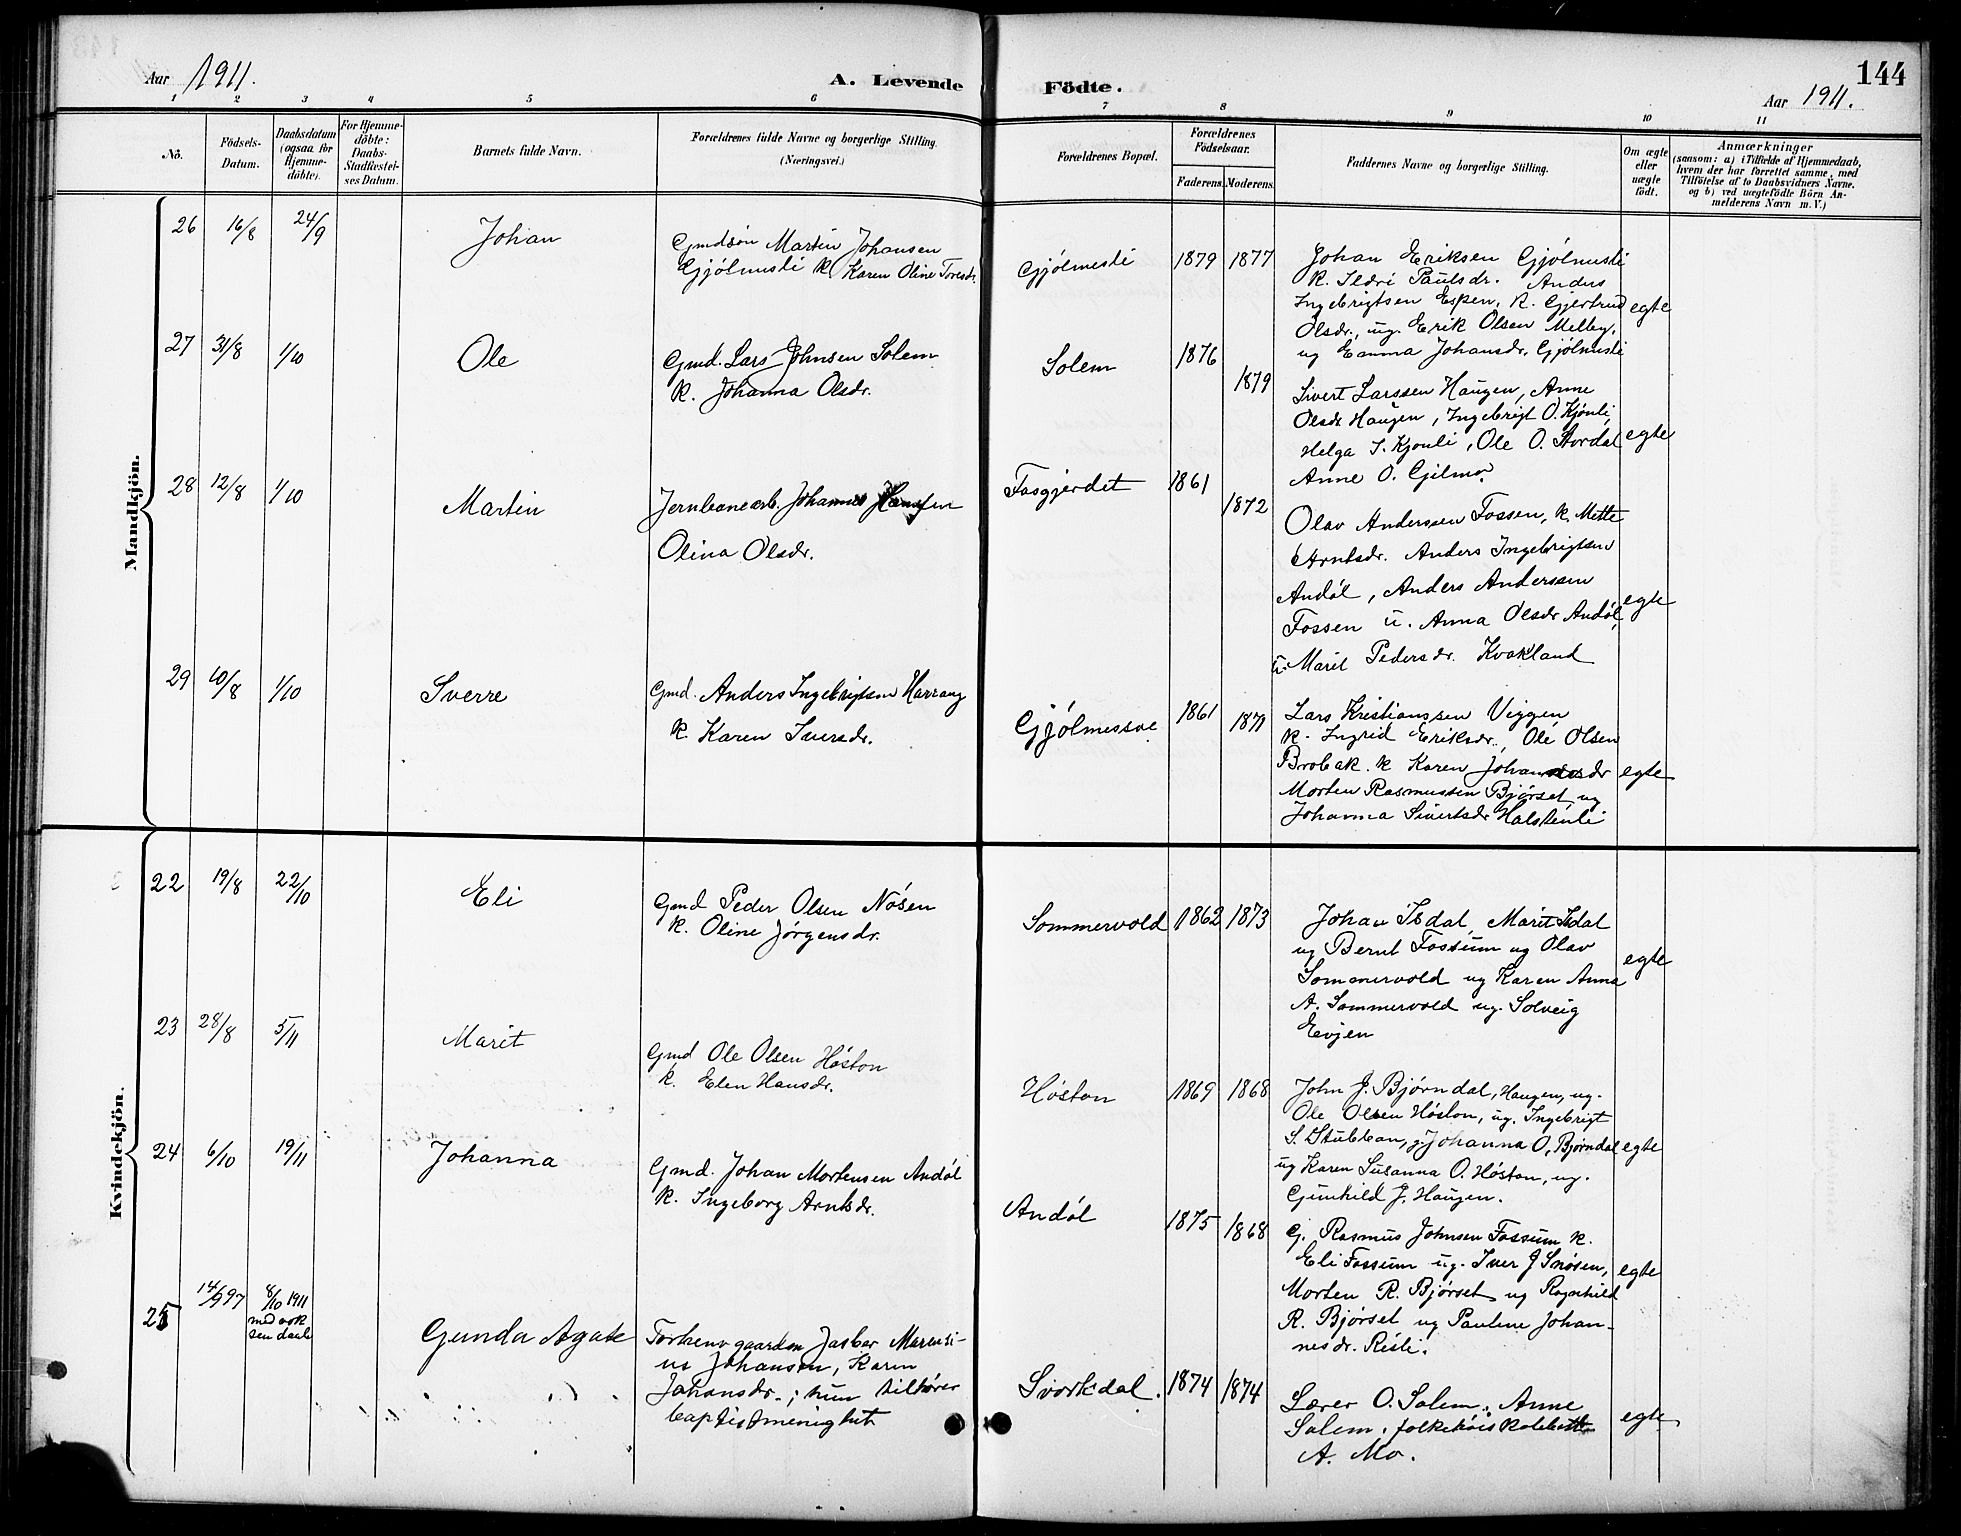 Aar 1911.
A. Levende
Födte.
144
Aar 1911.
1 2 3 4 5 6 7 8 9 10 11
Nô.
Födsels-
Datum.
Daabsdatum
(ogsaa for
Hjemme-
döbte).
For Hjemme-
döbte:
Daabs-
Stadfæstel-
ses Datum.
Barnets fulde Navn.
Forældrenes fulde Navne og borgerlige Stilling.
(Næringsvei.)
Forældrenes Bopæl.
Forældrenes
Födselsaar.
Faderens. Moderens.
Faddernes Navne og borgerlige Stilling.
Om ægte
eller
uægte
födt.
Anmærkninger
(saasom: a) i Tilfælde af Hjemmedaab,
hvem der har forrettet samme, med
Tilföielse af to Daabsvidners Navne.
og b) ved uægtefödte Börn An-
melderens Navn m. V.)
Mandkjön.
26 16/8 24/9 Johan
Gmdsön Martin Johansen
Gjølmesli k Karen Oline Toresdr.
Gjølmesli 1879 1877
Johan Eriksen Gjølmesli
k. Sedri Paulsdr. Anders
Ingebrigtsen Espen, k. Gjertrud
Olsdr., ug. Erik Olsen Melby,
ug Emma Johansdr. Gjølmesli
egte
27 31/8 1/10 Ole
Gmd. Lars Johnsen Solem
k. Johanna Olsdr.
Solem 1876 1879
Sivert Larssen Haugen, Anne
Olsdr Haugen, Ingebrigt O. Kjønli,
Helga I. Kjønli, Ole O. Stordal
Anne O. Gjilmo.
egte
28 12/8 1/10 Martin
Jernbanearb. Johannes Hansen
Olina Olsdr.
Fosgjerdet 1861 1872
Olav Anderssen Fossen, k. Mette
Arntsdr. Anders Ingebrigtsen
Andøl, Anders Anderssen
Fossen u. Anna Olsdr Andøl,
u. Marit Pedersdr. Kvakland
egte
29 10/8 1/10 Sverre
Gmd. Anders Ingebrigtsen Harrang
k. Karen Iversdr.
Gjølmessve 1861 1871
Lars Kristianssen Viggen
k. Ingrid Eriksdr., Ole Olsen
Brobak. k Karen Johannesdr
Morten Rasmussen Bjørset, ug
Johanna Sivertsdr Halstenli
egte
Kvindekjön.
22 19/8 22/10 Eli
Gmd Peder Olsen Nøsen
k. Oline Jørgensdr.
Sommervold 1862 1873
Johan Isdal, Marit Isdal
ug Bernt Fossum ug Olav
Sommervold ug Karen Anna
A. Sommervold ug. Solveig
Evjen
egte
23 28/8 5/11 Marit
Gmd Ole Olsen Høston
k. Elen Hansdr.
Høston 1869 1868
John J. Bjørndal, Haugen, ug.
Ole Olsen Høston, ug. Ingebrigt
S. Stubban, g. Johanna O. Bjørndal
ug Karen Susanna O. Høston, ug.
Gunhild J. Haugen.
egte
24 6/10 19/11 Johanna
Gmd. Johan Mortensen Andøl
k. Ingeborg Arntsdr.
Andøl 1875 1868
G. Rasmus Johnsen Fossum k.
Eli Fossum ug. Iver J Snøsen,
Morten R. Bjørset ug Ragnhild
R. Bjørset ug Pauline Johan-
nesdr. Risli.
egte
25 14/9 97 8/10 1911
med vok
sen daab
Gunda Agate
gaarden Jasbar
Johansen, Karen
Johansdr.; hun tilhører
baptistmenighet
Svorkdal. 1874 1874
Lærer O. Solem, Anne
Solem,
A. Mo.
egte